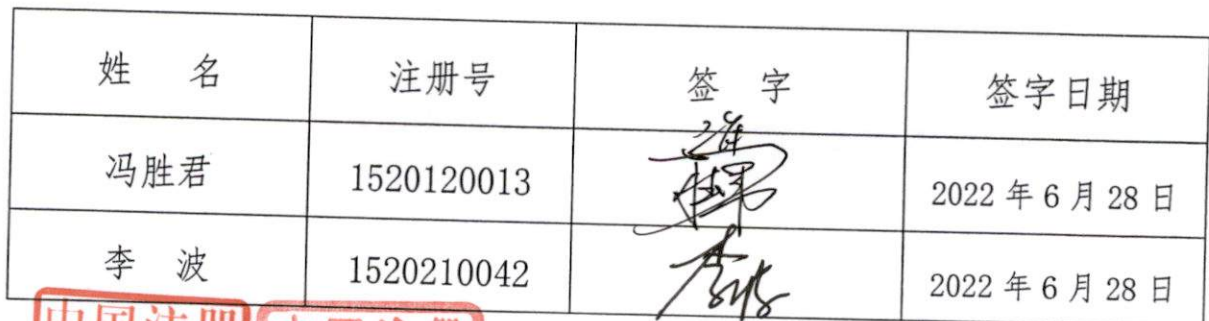 姓 名 注册号 签 字 签字日期
冯胜君 1520120013 2022 年 6 月 28 日
李 波 1520210042 2022 年 6 月 28 日
中国注册